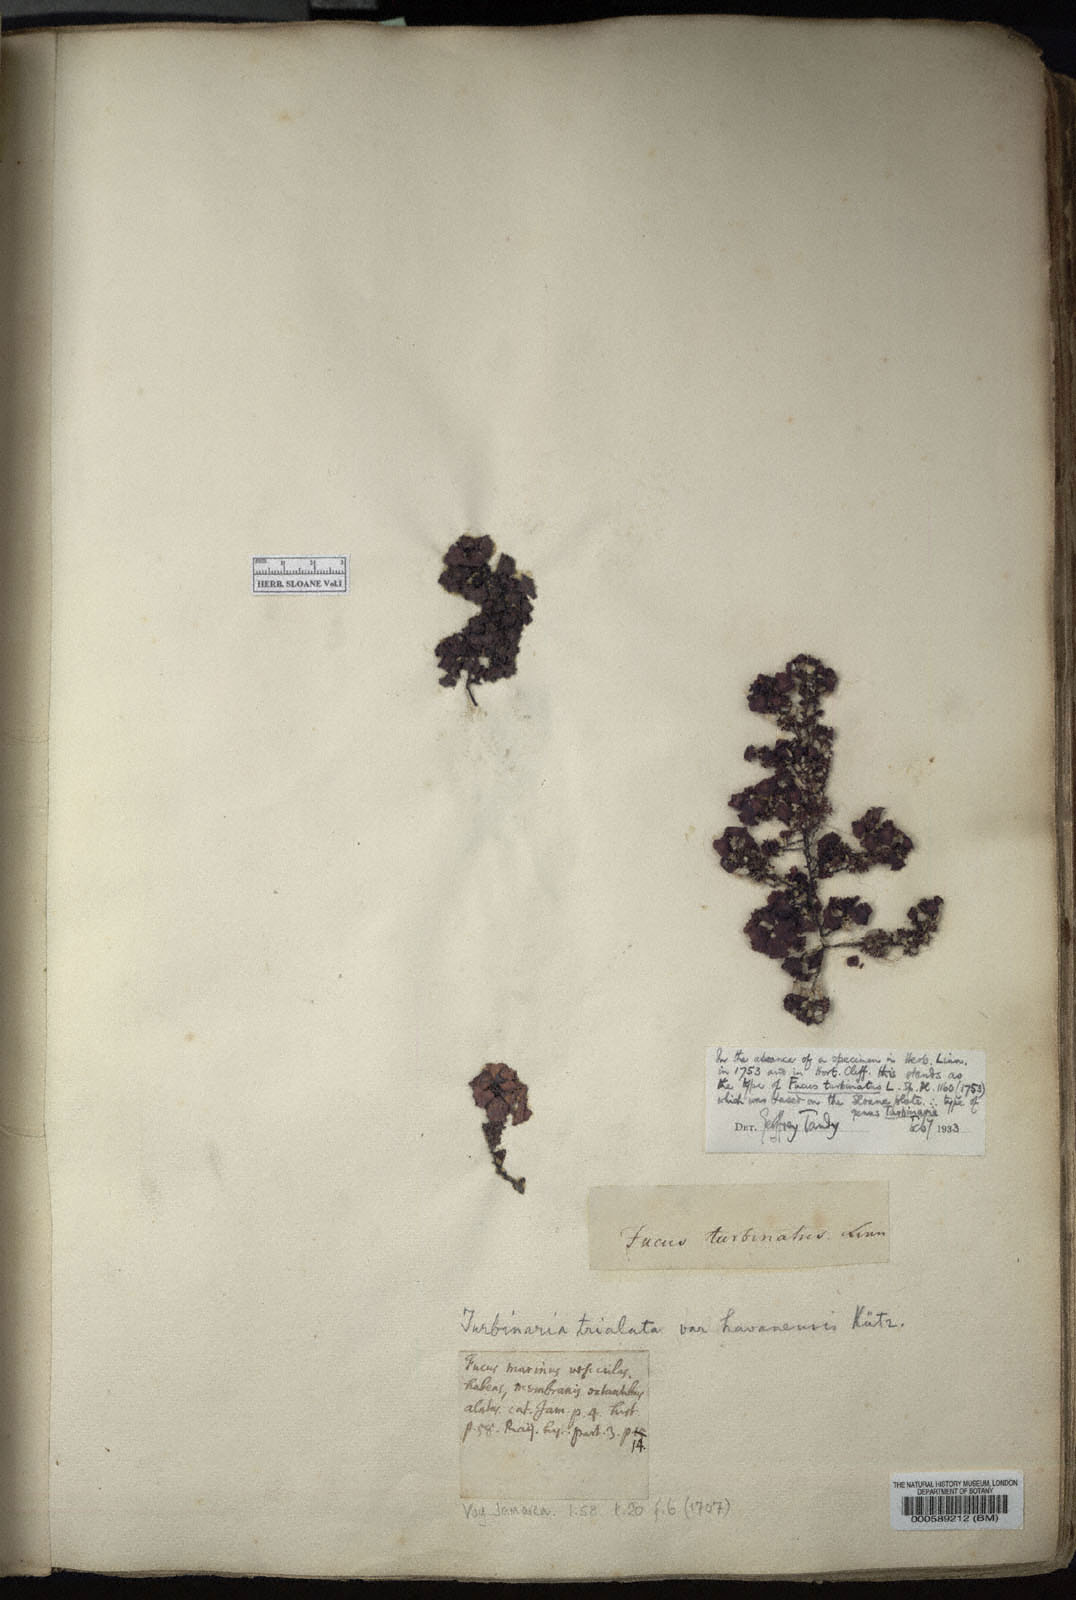 HERB. SLOANE Vol.1
In the absence of a specimen in Herb. Linn.
in 1753 and in Hort. Cliff. this stands as
the type of Fucus turbinatus L. Sp. Pl. 1160 (1753)
which was based on the Sloane plate ∴ type of
genus Turbinaria
DET. Geoffrey Tandy Feb 7 1933
Fucus turbinatus. Linn
Turbinaria trialata var havanensis Kütz.
Fucus marinus vesiculas
habens, membranis extantibus
alatas. cat. Jam. p. 4. hist.
p. 58. Raij. hist. part. 3. p
14.
Voy. Jamaica. 1.58. t.20 f.6 (1707)
THE NATURAL HISTORY MUSEUM, LONDON
DEPARTMENT OF BOTANY
000589212 (BM)